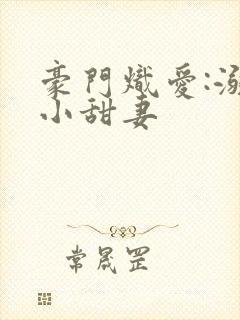 豪門熾愛:溺
小甜妻
常晟罡